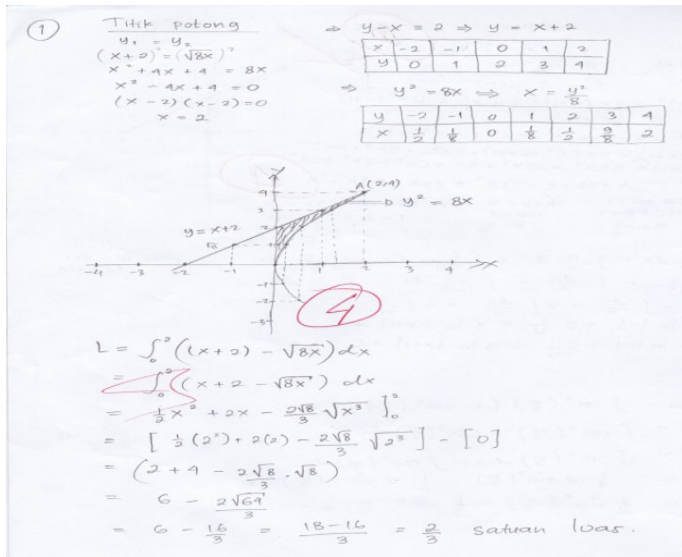 1
Titik potong
y₁ = y₂
(x+2)² = (√8x)²
x² + 4x + 4 = 8x
x² - 4x + 4 = 0
(x-2)(x-2) = 0
x = 2
⇒ y - x = 2 ⇒ y = x + 2
x -2 -1 0 1 2
y 0 1 2 3 4
⇒ y² = 8x ⇒ x = y²/8
y -2 -1 0 1 2 3 4
x 1/2 1/8 0 1/8 1/2 9/8 2
Y
A(2,4)
y² = 8x
y = x+2
B
4
3
2
1
-4 -3 -2 -1 1 2 3 4 X
-1
-2
-3
4
L = ∫₀² ((x+2) - √8x) dx
= ∫₀² (x + 2 - √8x) dx
= 1/2 x² + 2x - 2√8/3 √x³ ]₀²
= [1/2 (2²) + 2(2) - 2√8/3 √2³] - [0]
= (2 + 4 - 2√8/3 . √8)
= 6 - 2√64/3
= 6 - 16/3 = 18-16/3 = 2/3 satuan luas.